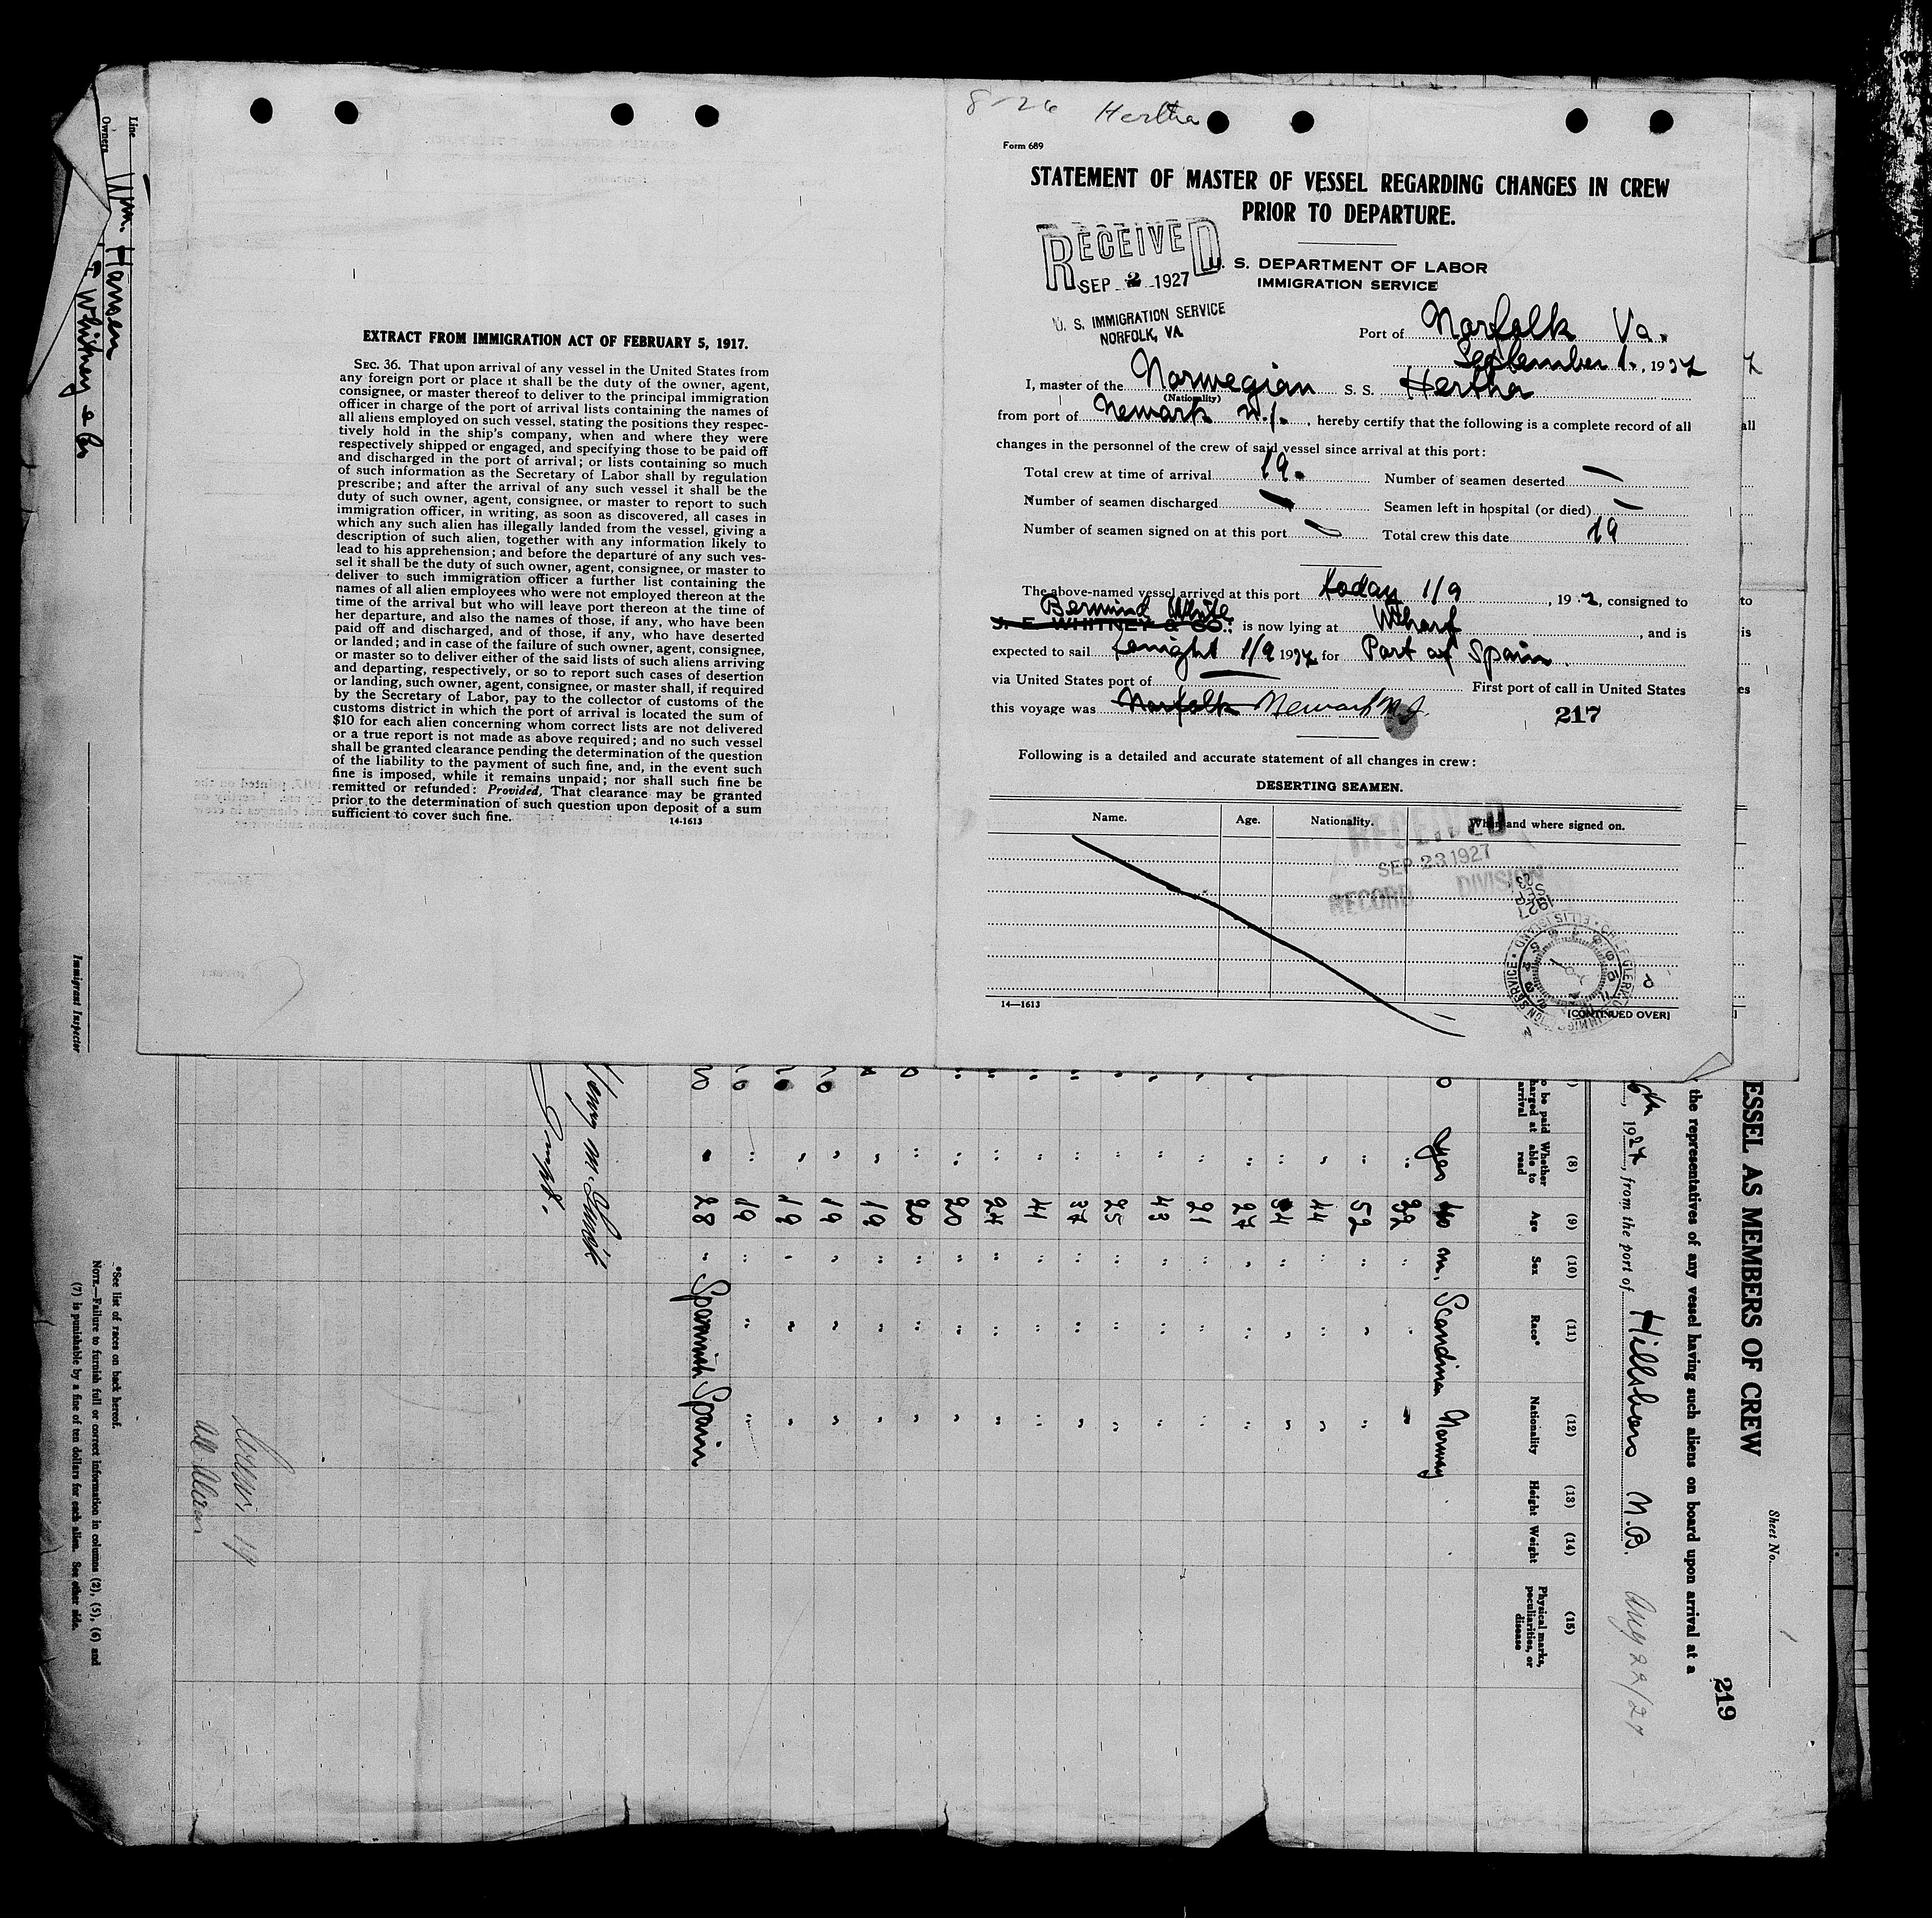 8-26 Hertha
Form 689
STATEMENT OF MASTER OF VESSEL REGARDING CHANGES IN CREW
PRIOR TO DEPARTURE.
RECEIVED
SEP 2 1927
U. S. IMMIGRATION SERVICE
NORFOLK, VA.
U. S. DEPARTMENT OF LABOR
IMMIGRATION SERVICE
Port of Norfolk Va.
September 1., 1927
I, master of the Norwegian S. S. Hertha
(Nationality)
from port of Newark N.J., hereby certify that the following is a complete record of all
changes in the personnel of the crew of said vessel since arrival at this port:
Total crew at time of arrival 19. Number of seamen deserted —
Number of seamen discharged — Seamen left in hospital (or died) —
Number of seamen signed on at this port — Total crew this date 19
The above-named vessel arrived at this port today 1/9, 192, consigned to
Berwind White
J. F. WHITNEY & CO. is now lying at Wharf, and is
expected to sail tonight 1/9 1927 for Port of Spain.
via United States port of — First port of call in United States
this voyage was Norfolk Newark N.J. 217
Following is a detailed and accurate statement of all changes in crew:
DESERTING SEAMEN.
Name. Age. Nationality. When and where signed on.
RECEIVED
SEP 23 1927
RECORD DIVISION
14—1613
[CONTINUED OVER]
EXTRACT FROM IMMIGRATION ACT OF FEBRUARY 5, 1917.
SEC. 36. That upon arrival of any vessel in the United States from
any foreign port or place it shall be the duty of the owner, agent,
consignee, or master thereof to deliver to the principal immigration
officer in charge of the port of arrival lists containing the names of
all aliens employed on such vessel, stating the positions they respec-
tively hold in the ship's company, when and where they were
respectively shipped or engaged, and specifying those to be paid off
and discharged in the port of arrival; or lists containing so much
of such information as the Secretary of Labor shall by regulation
prescribe; and after the arrival of any such vessel it shall be the
duty of such owner, agent, consignee, or master to report to such
immigration officer, in writing, as soon as discovered, all cases in
which any such alien has illegally landed from the vessel, giving a
description of such alien, together with any information likely to
lead to his apprehension; and before the departure of any such ves-
sel it shall be the duty of such owner, agent, consignee, or master to
deliver to such immigration officer a further list containing the
names of all alien employees who were not employed thereon at the
time of the arrival but who will leave port thereon at the time of
her departure, and also the names of those, if any, who have been
paid off and discharged, and of those, if any, who have deserted
or landed; and in case of the failure of such owner, agent, consignee,
or master so to deliver either of the said lists of such aliens arriving
and departing, respectively, or so to report such cases of desertion
or landing, such owner, agent, consignee, or master shall, if required
by the Secretary of Labor, pay to the collector of customs of the
customs district in which the port of arrival is located the sum of
$10 for each alien concerning whom correct lists are not delivered
or a true report is not made as above required; and no such vessel
shall be granted clearance pending the determination of the question
of the liability to the payment of such fine, and, in the event such
fine is imposed, while it remains unpaid; nor shall such fine be
remitted or refunded: Provided, That clearance may be granted
prior to the determination of such question upon deposit of a sum
sufficient to cover such fine.
14-1613
Sheet No. 1
219
ESSEL AS MEMBERS OF CREW
the representatives of any vessel having such aliens on board upon arrival at a
6th, 1927, from the port of Hillsboro N.B. Aug 22/27
(8) (9) (10) (11) (12) (13) (14) (15)
Whether able to read
Age
Sex
Race*
Nationality
Height
Weight
Physical marks, peculiarities, or disease
yes 40 m. Scandinav Norway
" 32 " " "
" 52 " " "
" 44 " " "
" 34 " " "
" 27 " " "
" 21 " " "
" 43 " " "
" 25 " " "
" 37 " " "
" 41 " " "
" 24 " " "
" 20 " " "
" 20 " " "
" 19 " " "
" 19 " " "
" 19 " " "
" 19 " " "
" 28 " Spannish Spain
Inspt.
All Alien
Line Wm. Hansen
Owners Whitney & Co
Immigrant Inspector
*See list of races on back hereof.
NOTE.—Failure to furnish full or correct information in columns (2), (5), (6) and
(7) is punishable by a fine of ten dollars for each alien. See other side.